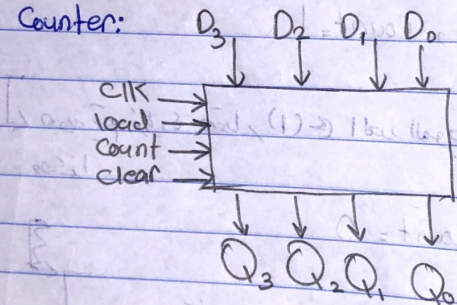 Counter:
D₃ D₂ D₁ D₀
Clk
load
Count
Clear
Q₃ Q₂ Q₁ Q₀